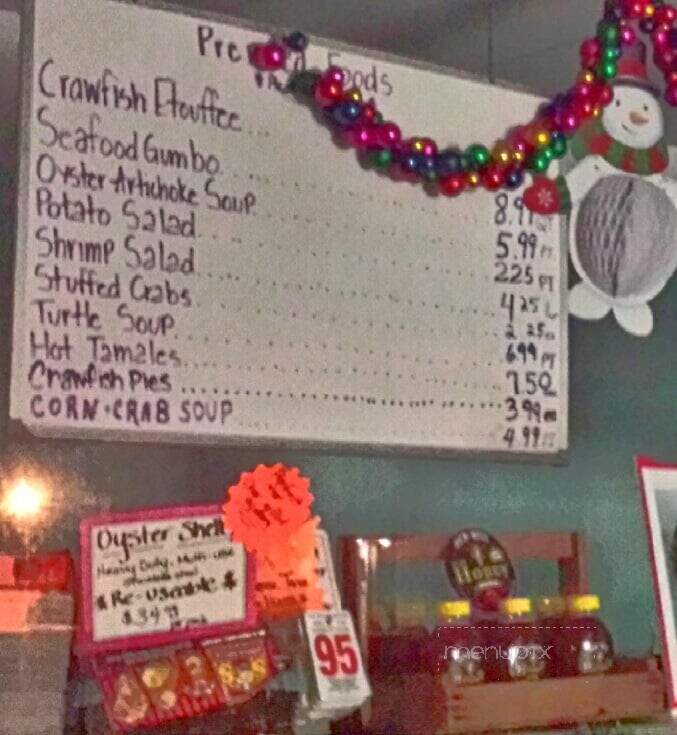 Foods
Crawfish Etouffee...
Seafood Gumbo
Oyster Artichoke Soup 8.99
Potato Salad 5.99 PT
Shrimp Salad 225 PT
Stuffed Crabs 425
Turtle Soup 2 25
Hot Tamales 699 PT
Crawfish Pies 7.50
CORN-CRAB SOUP 3.99 ea
4.99
Oyster Shells
Heavy Duty - Multi-use
* Re-Useable *
$39.99
95
Honey
menupix